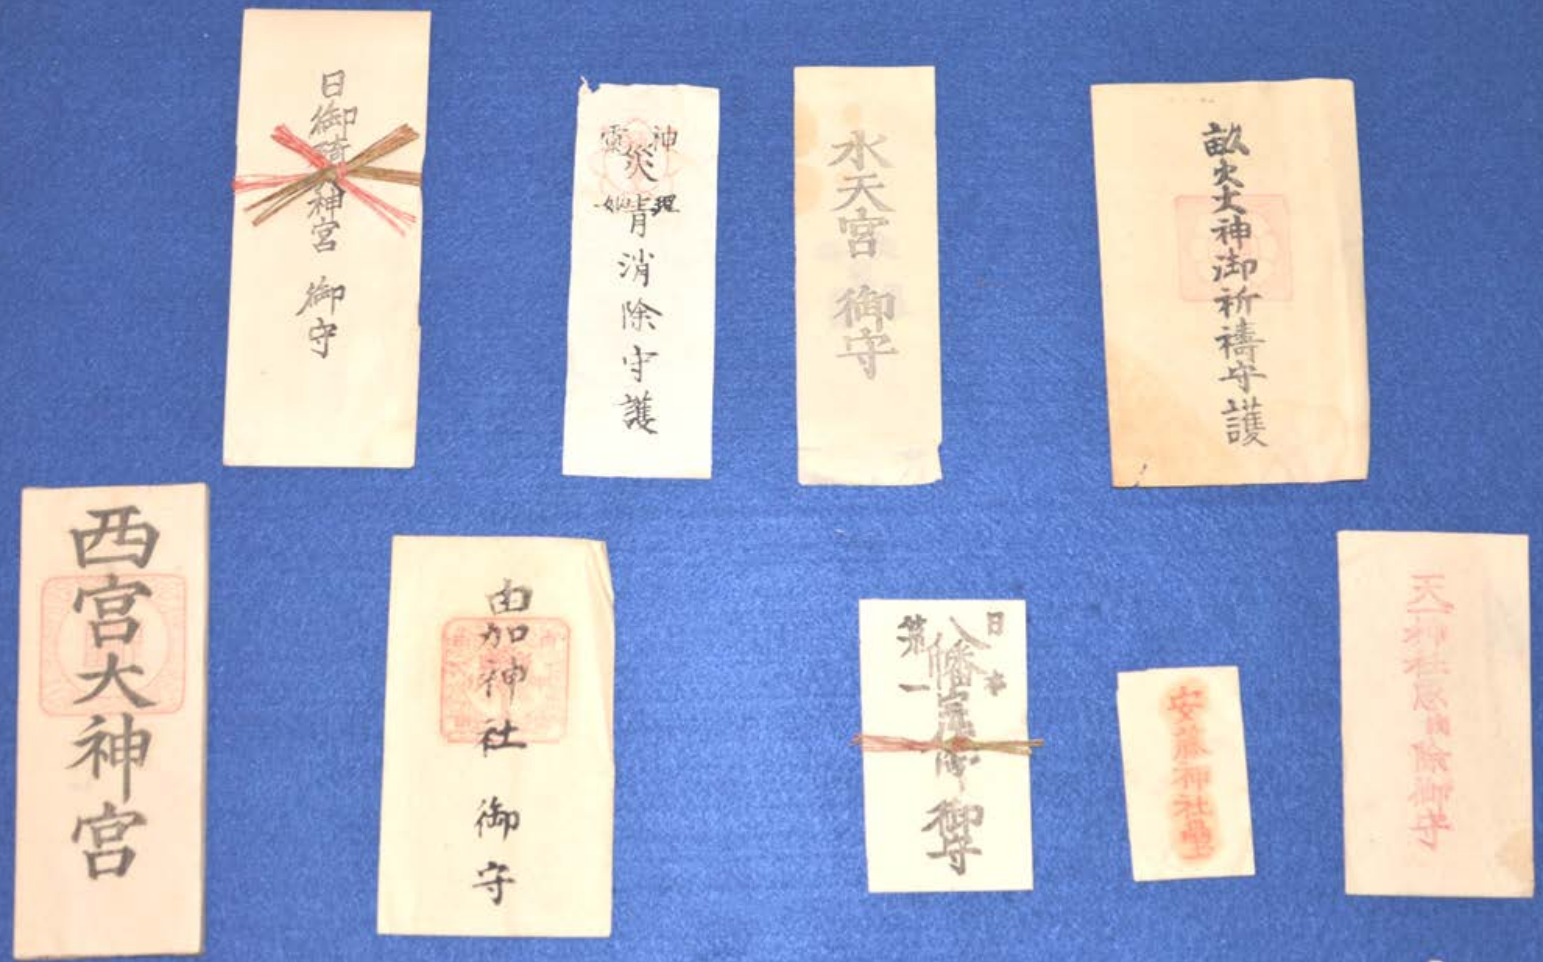 日御碕神宮 御守
災消除守護
水天宮 御守
畝火大神御祈禱守護
西宮大神宮
由加神社 御守
日本
第一
八幡 御守
安藤神社
天一神社 除御守